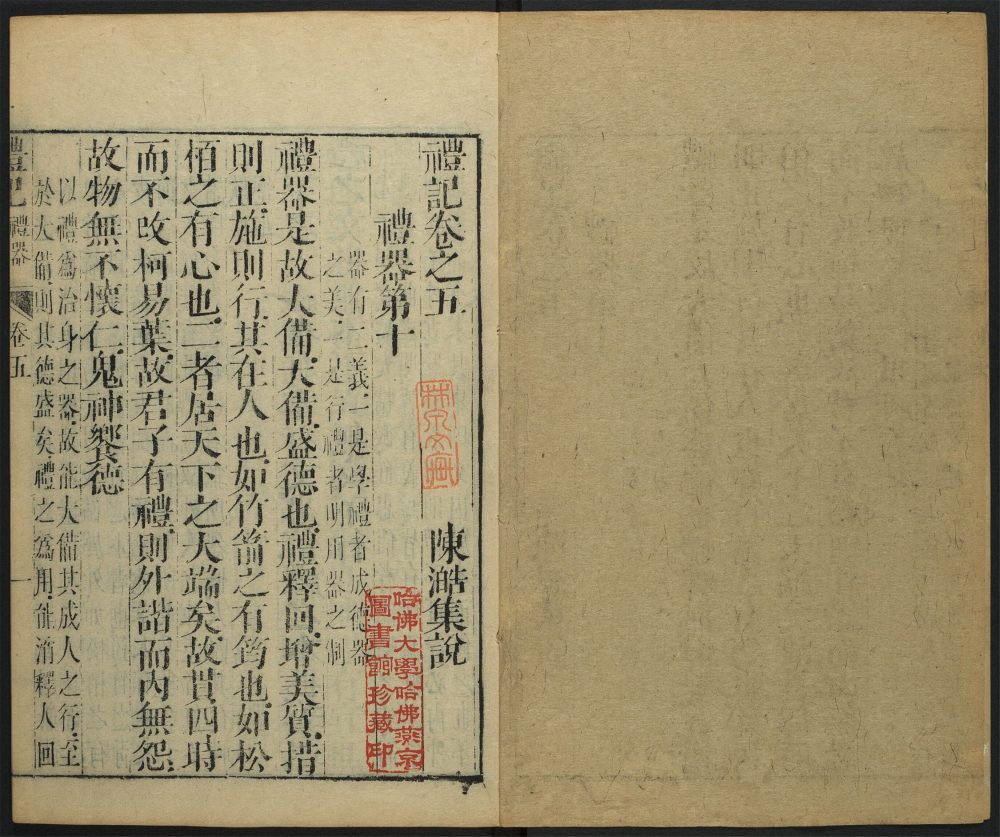 禮記卷之五
陳澔集說
禮器第十
器有二義一是學禮者成德器
之美一是行禮者明用器之制
禮器是故大備大備盛德也禮釋回增美質措
則正施則行其在人也如竹箭之有筠也如松
栢之有心也二者居天下之大端矣故貫四時
而不改柯易葉故君子有禮則外諧而內無怨
故物無不懷仁鬼神饗德
以禮爲治身之器故能大備其成人之行至
於大備則其德盛矣禮之爲用能消釋人回
禮記 禮器
卷五
一
哈佛大學哈佛燕京
圖書館珍藏印